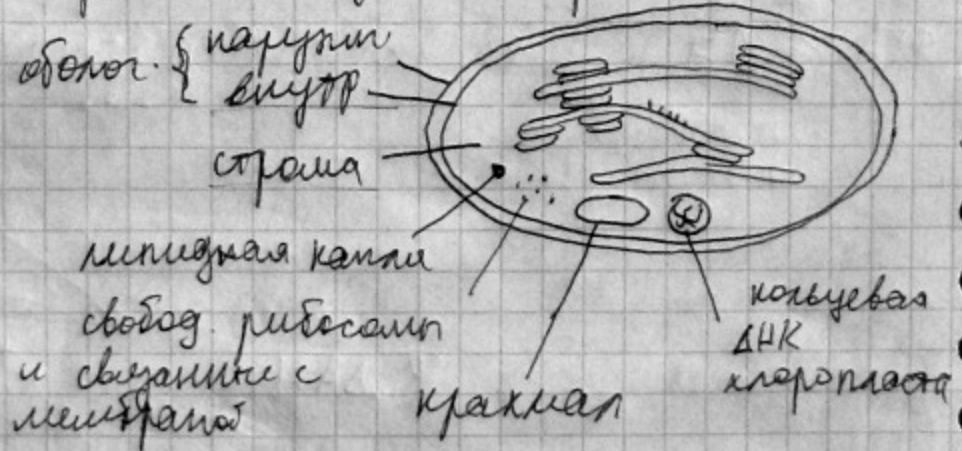 оболоч. { наружн
внутр
строма
липидная капля
свобод. рибосомы
и связанные с
мембраной
крахмал
кольцевая
ДНК
хлоропласта